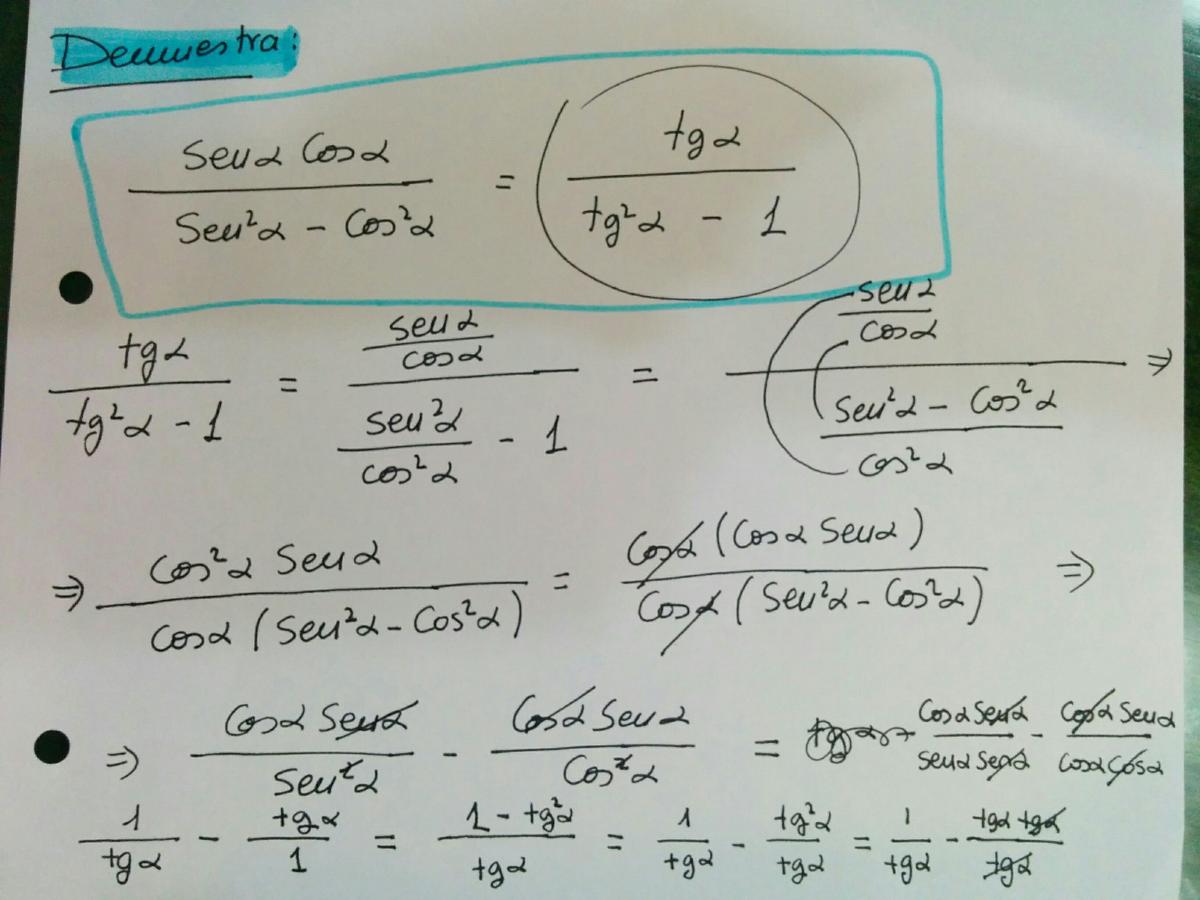 Demuestra:
senα cosα / (sen²α - cos²α) = tgα / (tg²α - 1)
tgα / (tg²α - 1) = (senα/cosα) / (sen²α/cos²α - 1) = (senα/cosα) / ((sen²α - cos²α)/cos²α) ⇒
⇒ cos²α senα / (cosα (sen²α - cos²α)) = cosα (cosα senα) / (cosα (sen²α - cos²α)) ⇒
⇒ cosα senα / sen²α - cosα senα / cos²α = cosα senα / (senα senα) - cosα senα / (cosα cosα)
1/tgα - tgα/1 = (1 - tg²α)/tgα = 1/tgα - tg²α/tgα = 1/tgα - tgα tgα/tgα